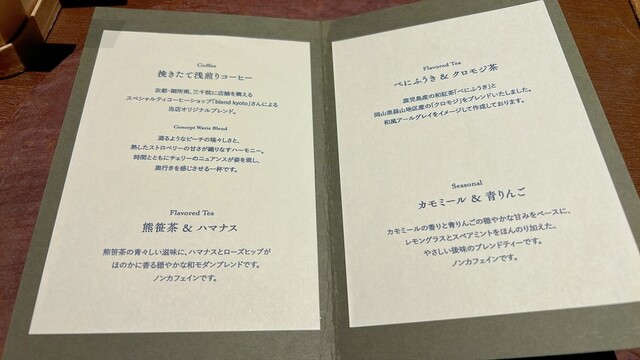 Coffee
挽きたて浅煎りコーヒー
京都・御所南、三千院に店舗を構える
スペシャルティコーヒーショップ「blend kyoto」さんによる
当店オリジナルブレンド。
Concept Waste Blend
滴るようなピーチの瑞々しさと、
熟したストロベリーの甘さが織りなすハーモニー。
時間とともにチェリーのニュアンスが姿を現し、
奥行きを感じさせる一杯です。
Flavored Tea
熊笹茶 & ハマナス
熊笹茶の青々しい滋味に、ハマナスとローズヒップが
ほのかに香る穏やかな和モダンブレンドです。
ノンカフェインです。
Flavored Tea
べにふうき & クロモジ茶
鹿児島産の和紅茶「べにふうき」と
岡山県蒜山地区産の「クロモジ」をブレンドいたしました。
和風アールグレイをイメージして作成しております。
Seasonal
カモミール & 青りんご
カモミールの香りと青りんごの穏やかな甘みをベースに、
レモングラスとスペアミントをほんのり加えた、
やさしい後味のブレンドティーです。
ノンカフェインです。